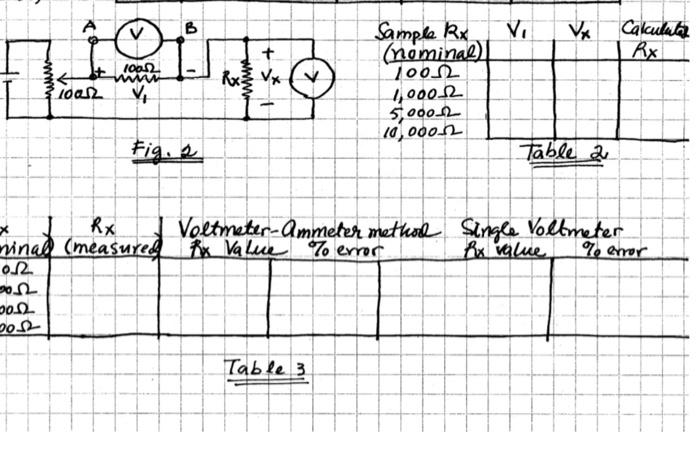 A V B
100Ω
+ -
100Ω V1
+
Rx Vx V
-
Fig. 2
Sample Rx V1 Vx Calculated
(nominal) Rx
100Ω
1,000Ω
5,000Ω
10,000Ω
Table 2
x Rx Voltmeter-Ammeter method Single Voltmeter
minal) (measured) Rx Value % error Rx value % error
0Ω
00Ω
00Ω
00Ω
Table 3